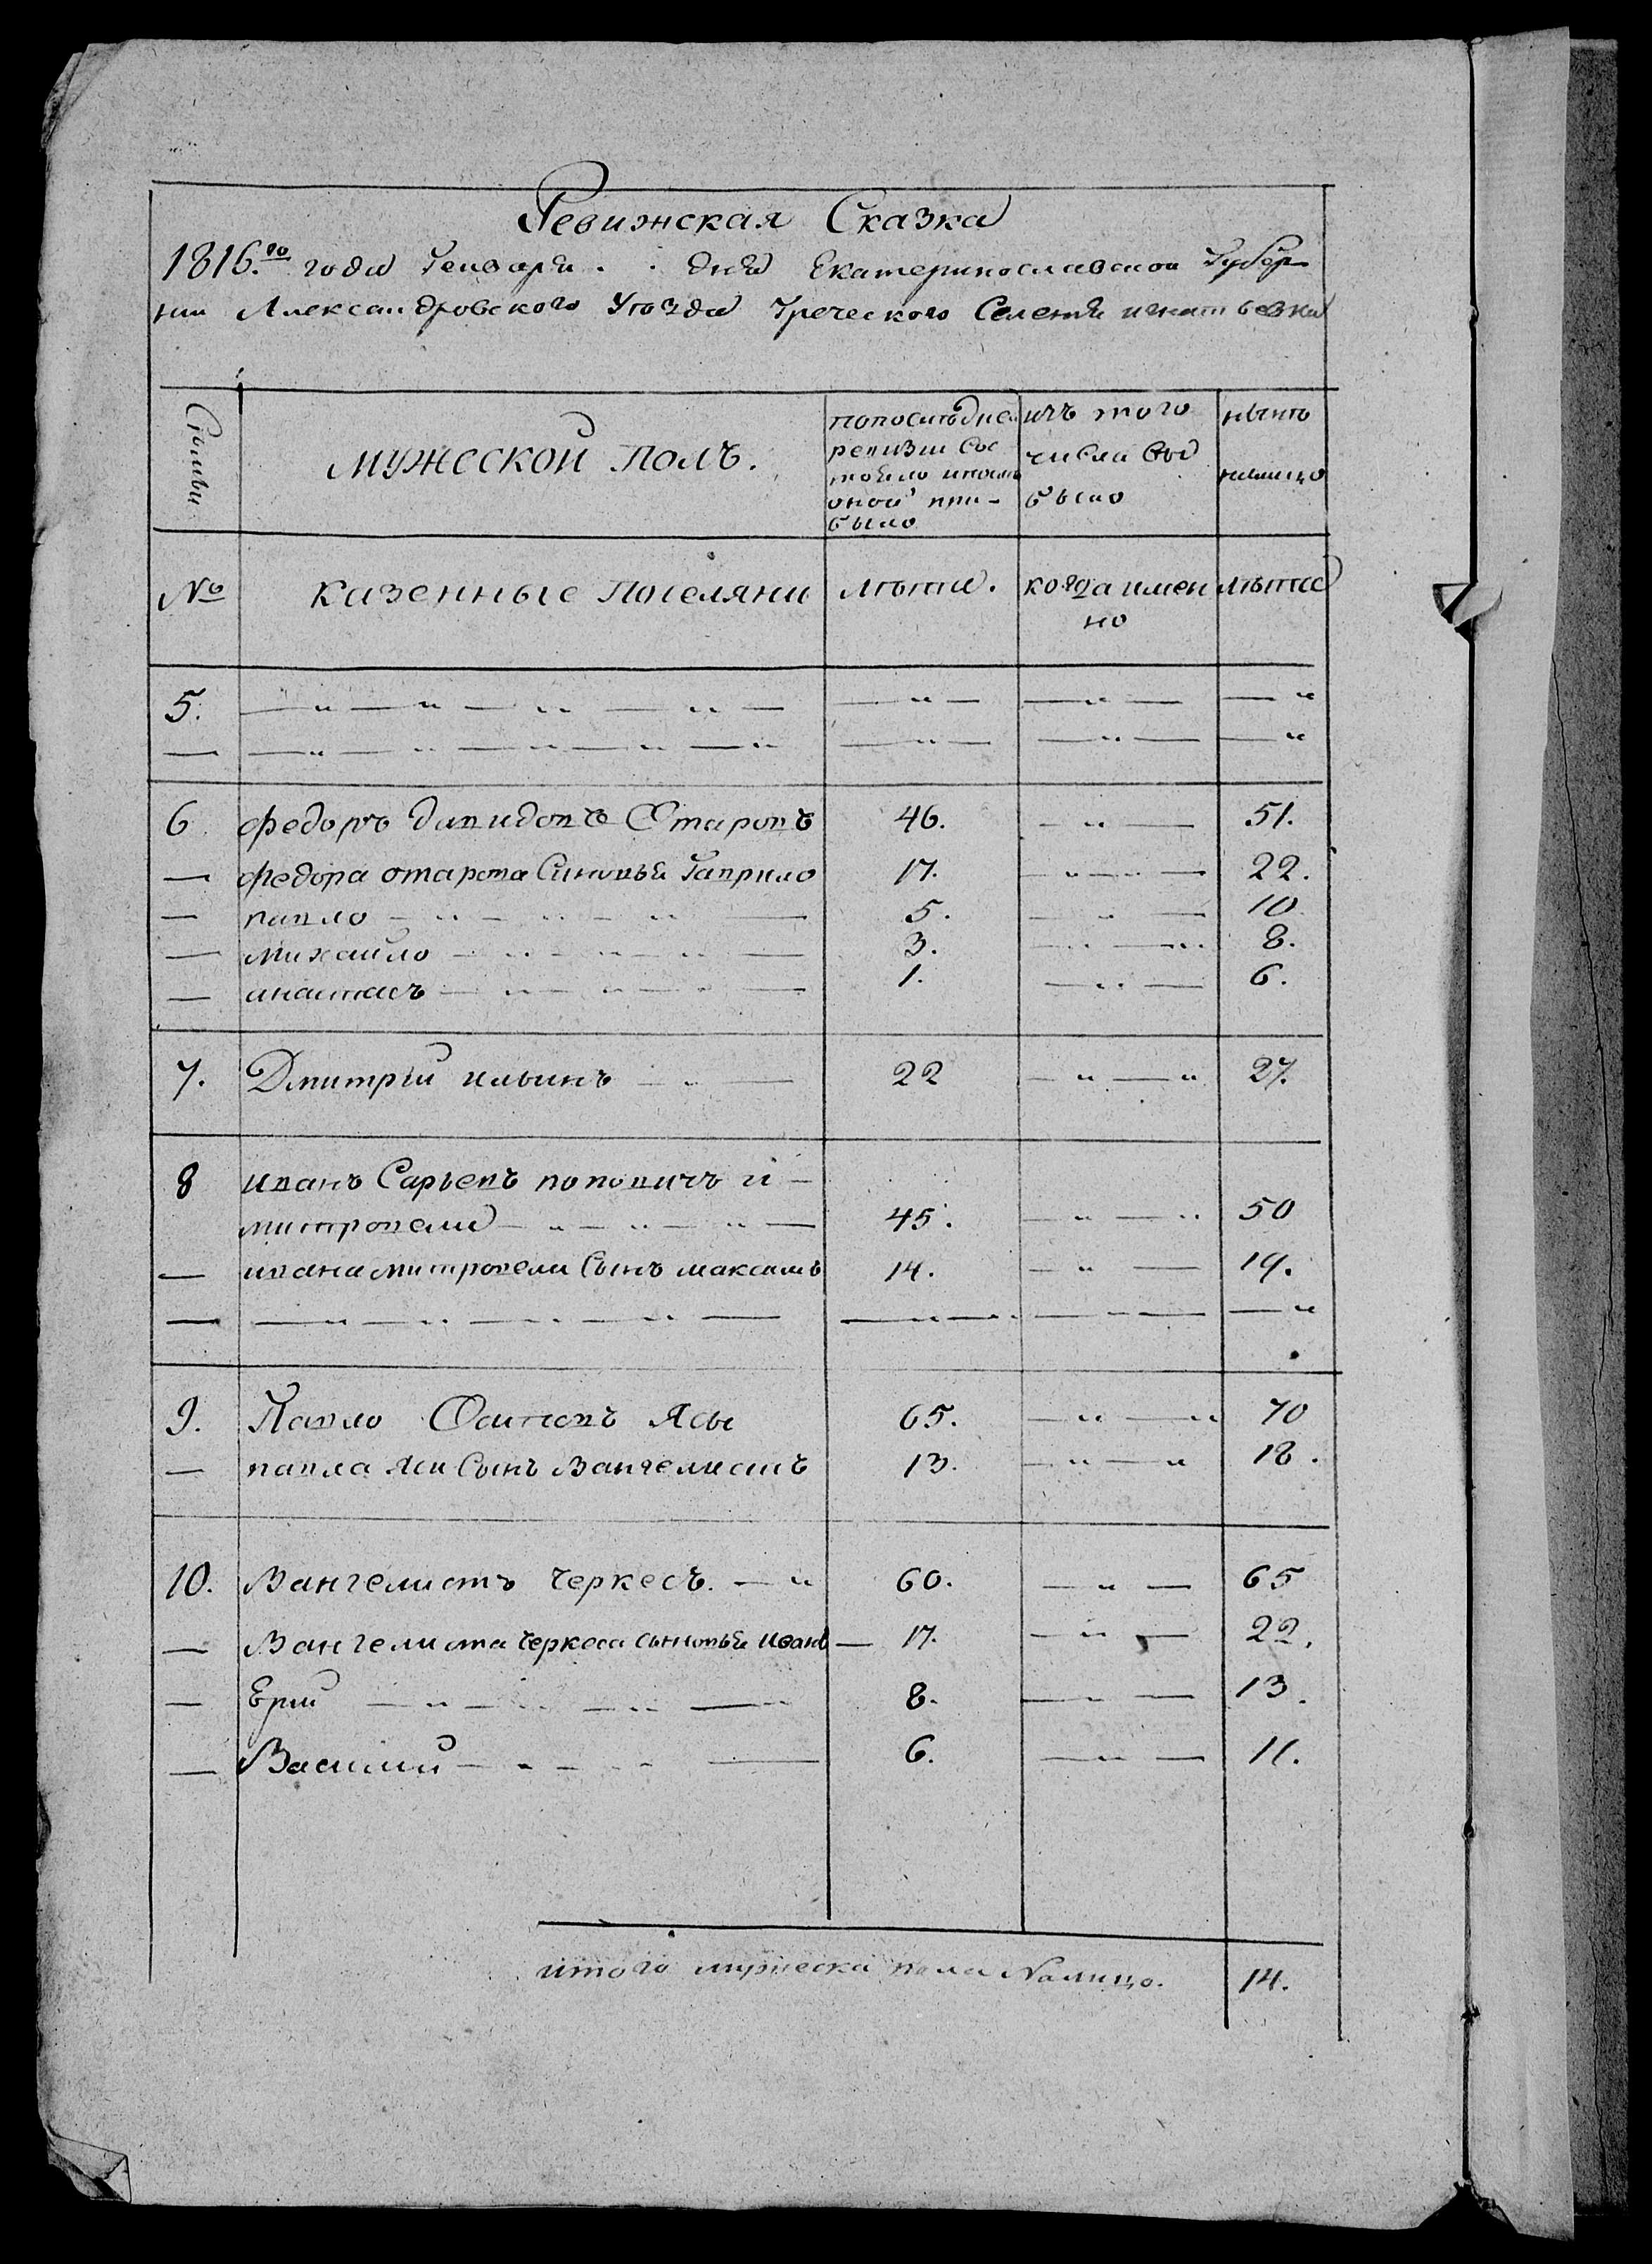 Ревижская Сказка
1816.го года Генваря . . дня Екатеринославской Губер-
нии Александровского Уѣзда Греческого Селенія игнатьевки
Сѣмьи
мужеской полъ.
попослѣдней
ревизіи Сос
тояло ипослѣ
оной при-
было
изъ того
числа выбыло
нынѣ
налицо
№ казенные Поселяни лѣта. когда имен лѣта
но
5. — „ — „ — „ — „ — — „ — — „ — — „
— — „ — „ — „ — „ — „ — „ — — „ — — „
6 федоръ давидовъ Отаровъ 46. — „ — 51.
— федора отарова Синовья Гаврило 17. — „ — „ — 22.
— павло — „ — „ — „ — 5. — „ — 10
— михаило — „ — „ — „ — 3. — „ — „ 8.
— анастасъ — „ — „ — „ — 1. — „ — 6.
7. Дмитрій ильинъ — „ — 22 — „ — „ 27.
8 иванъ Сарьевъ поповичъ и —
митровели — „ — „ — „ — 45. — „ — „ 50
— ивана митровели Сынъ максимъ 14. — „ — 19.
— — „ — „ — „ — „ — — „ — . — „ — — „
9. Павло Осиповъ Ясы 65. — „ — „ 70
— павла Яси Сынъ Вангелистъ 13. — „ — „ 18.
10. Вангелистъ Черкесъ. — „ 60. — „ — 65
— Вангелиста Черкеса сыновья иванъ — 17. — „ — 22.
— Ерій — „ — „ — „ — „ 8. — „ — 13.
— Василій — „ — „ — 6. — „ — 11.
итого мужеска пола Налицо. 14.